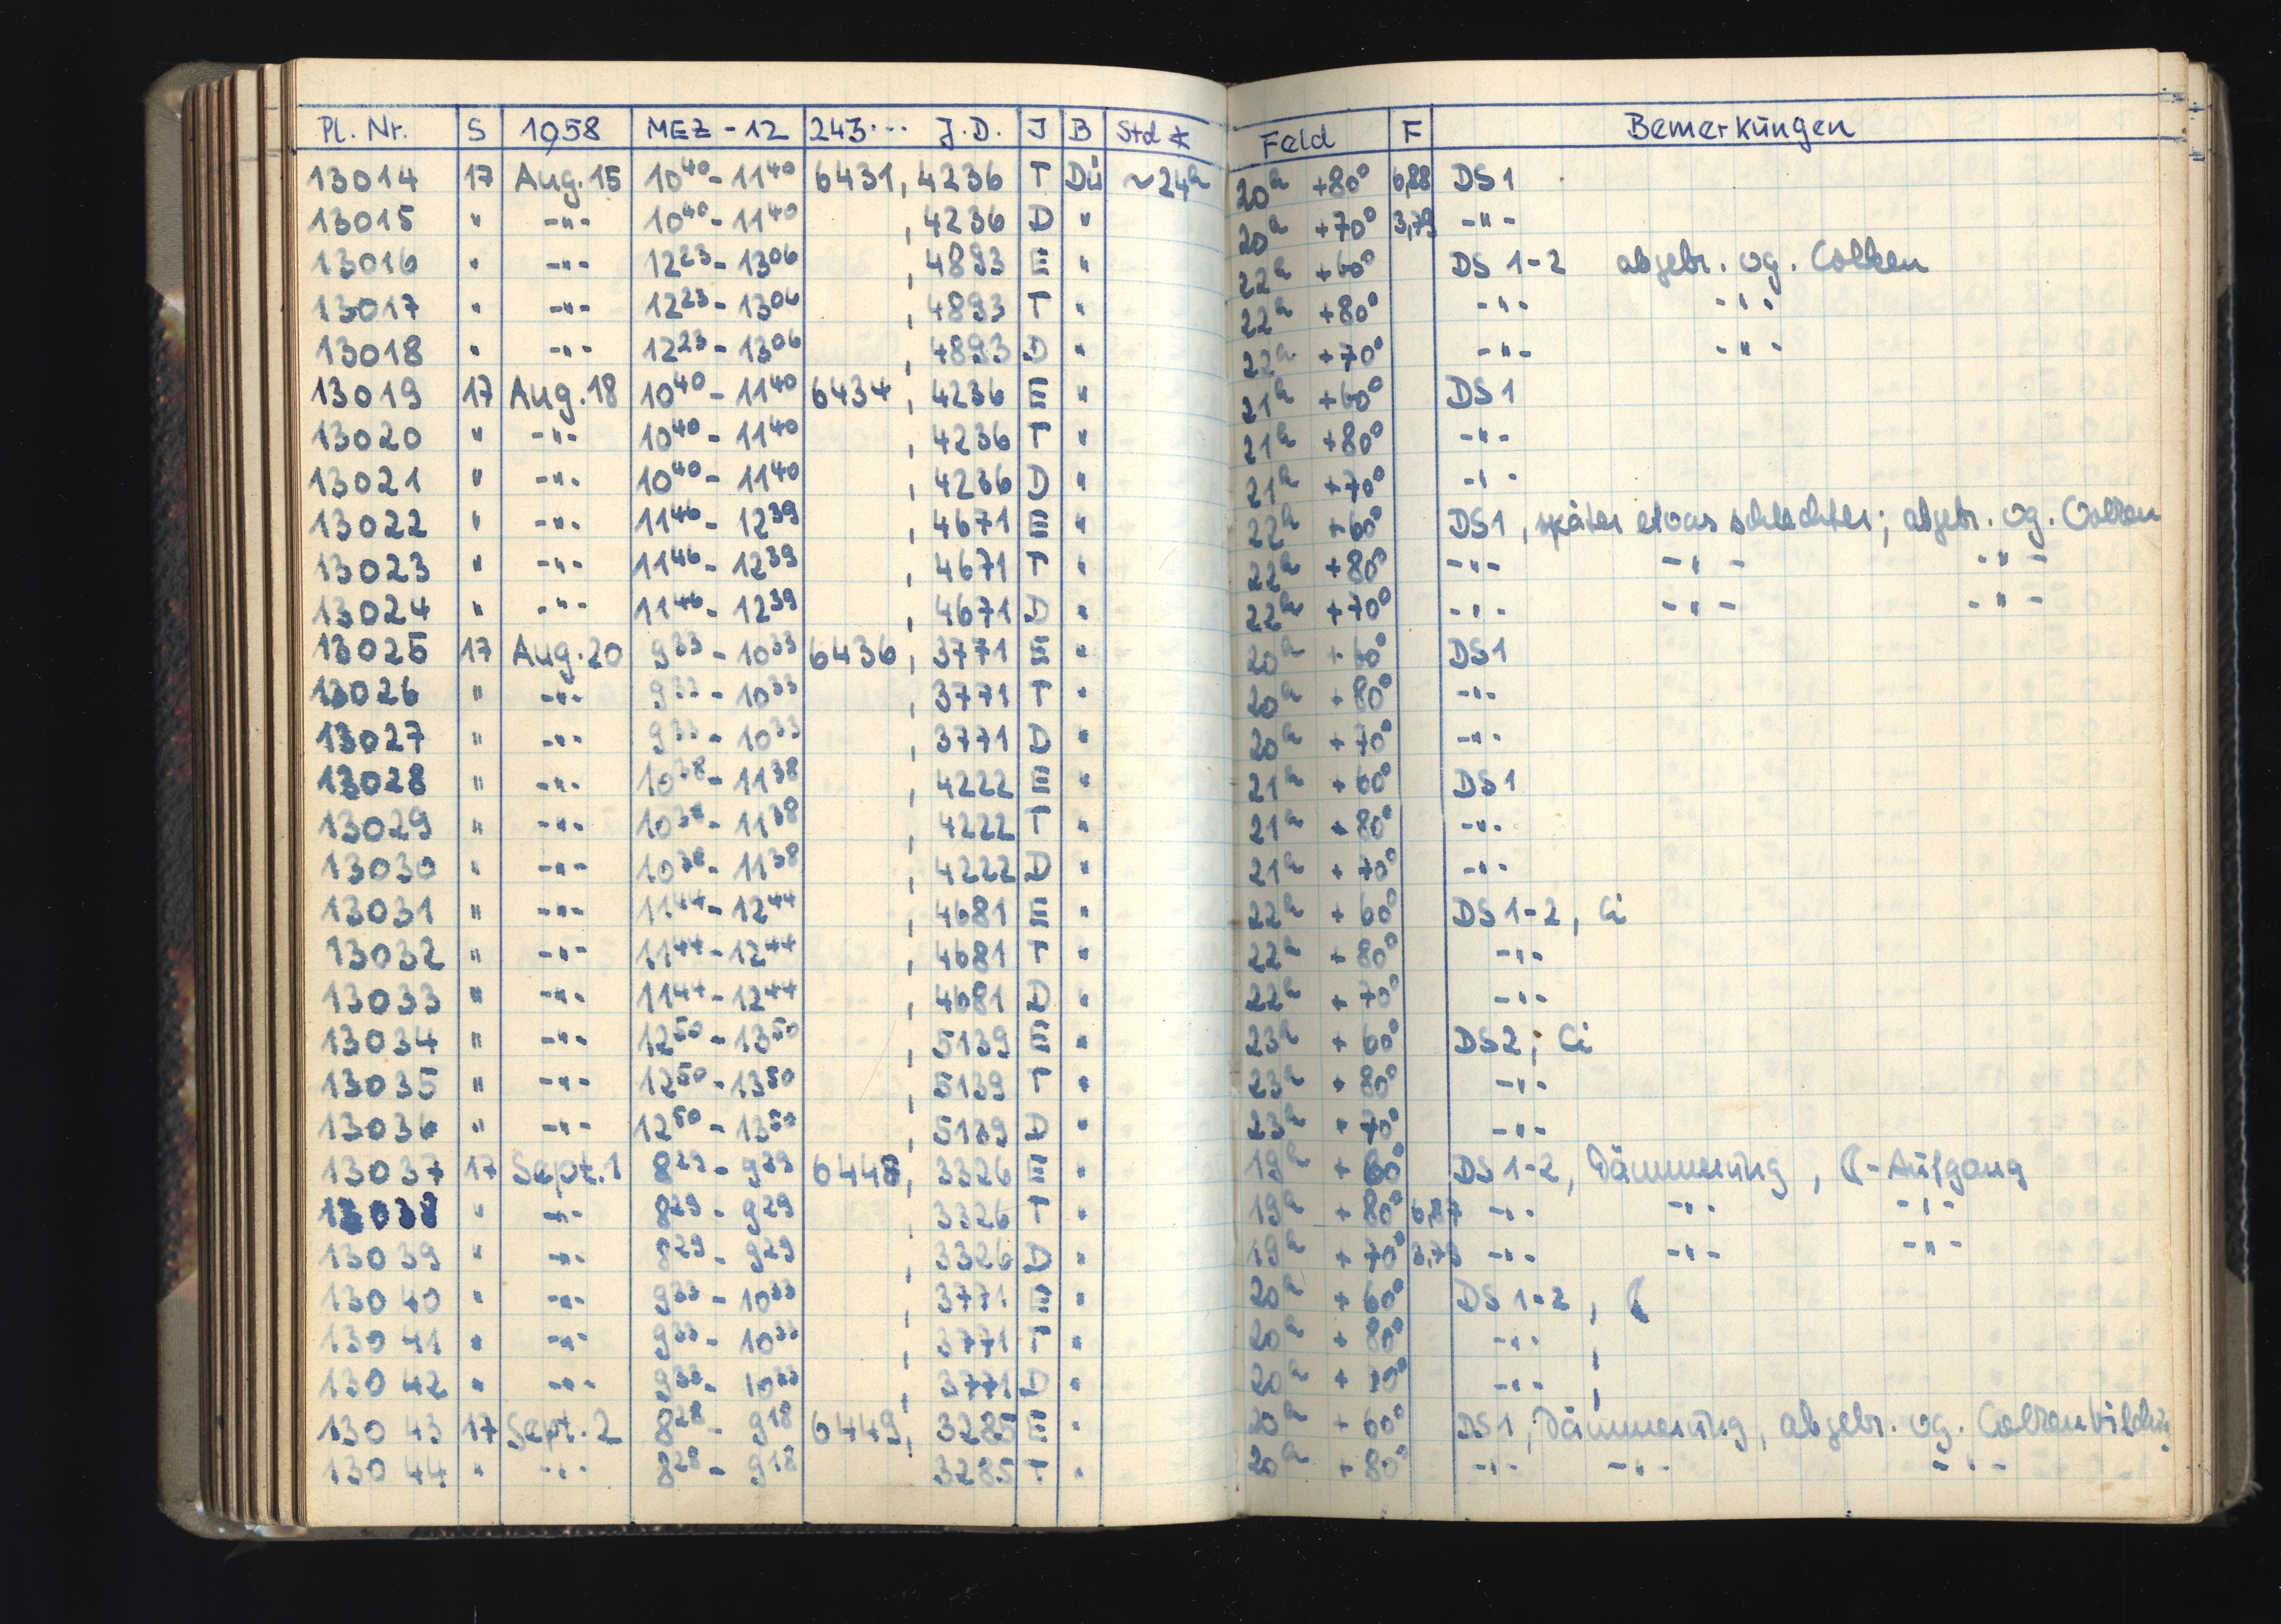 Pl. Nr. S 1958 MEZ - 12 243... J.D. J B Std * Feld F Bemerkungen
13014 17 Aug. 15 10⁴⁰ - 11⁴⁰ 6431, 4236 T Dü ~24ʰ 20ʰ +80° 6,88 DS1
13015 " -"- 10⁴⁰ - 11⁴⁰ , 4236 D " 20ʰ +70° 3,79 -"-
13016 " -"- 12²³ - 13⁰⁶ , 4893 E " 22ʰ +60° DS 1-2 abgebr. wg. Wolken
13017 " -"- 12²³ - 13⁰⁶ , 4893 T " 22ʰ +80° -"- -"-
13018 " -"- 12²³ - 13⁰⁶ , 4893 D " 22ʰ +70° -"- -"-
13019 17 Aug. 18 10⁴⁰ - 11⁴⁰ 6434, 4236 E " 21ʰ +60° DS1
13020 " -"- 10⁴⁰ - 11⁴⁰ , 4236 T " 21ʰ +80° -"-
13021 " -"- 10⁴⁰ - 11⁴⁰ , 4236 D " 21ʰ +70° -"-
13022 " -"- 11⁴⁶ - 12³⁹ , 4671 E " 22ʰ +60° DS1, später etwas schlechter; abgebr. wg. Wolken
13023 " -"- 11⁴⁶ - 12³⁹ , 4671 T " 22ʰ +80° -"- -"- -"-
13024 " -"- 11⁴⁶ - 12³⁹ , 4671 D " 22ʰ +70° -"- -"- -"-
13025 17 Aug. 20 9³³ - 10³³ 6436, 3771 E " 20ʰ +60° DS1
13026 " -"- 9³³ - 10³³ , 3771 T " 20ʰ +80° -"-
13027 " -"- 9³³ - 10³³ , 3771 D " 20ʰ +70° -"-
13028 " -"- 10³⁸ - 11³⁸ , 4222 E " 21ʰ +60° DS1
13029 " -"- 10³⁸ - 11³⁸ , 4222 T " 21ʰ +80° -"-
13030 " -"- 10³⁸ - 11³⁸ , 4222 D " 21ʰ +70° -"-
13031 " -"- 11⁴⁴ - 12⁴⁴ , 4681 E " 22ʰ +60° DS 1-2, Ci
13032 " -"- 11⁴⁴ - 12⁴⁴ , 4681 T " 22ʰ +80° -"-
13033 " -"- 11⁴⁴ - 12⁴⁴ , 4681 D " 22ʰ +70° -"-
13034 " -"- 12⁵⁰ - 13⁵⁰ , 5139 E " 23ʰ +60° DS2, Ci
13035 " -"- 12⁵⁰ - 13⁵⁰ , 5139 T " 23ʰ +80° -"-
13036 " -"- 12⁵⁰ - 13⁵⁰ , 5139 D " 23ʰ +70° -"-
13037 17 Sept. 1 8²⁹ - 9²⁹ 6448, 3326 E " 19ʰ +60° DS 1-2, Dämmerung, ☾-Aufgang
13038 " -"- 8²⁹ - 9²⁹ , 3326 T " 19ʰ +80° 6,87 -"- -"- -"-
13039 " -"- 8²⁹ - 9²⁹ , 3326 D " 19ʰ +70° 3,79 -"- -"- -"-
13040 " -"- 9³³ - 10³³ , 3771 E " 20ʰ +60° DS 1-2, ☾
13041 " -"- 9³³ - 10³³ , 3771 T " 20ʰ +80° -"- ,
13042 " -"- 9³³ - 10³³ , 3771 D " 20ʰ +70° -"- ,
13043 17 Sept. 2 8²⁸ - 9¹⁸ 6449, 3285 E " 20ʰ +60° DS1, Dämmerung, abgebr. wg. Wolkenbildung
13044 " -"- 8²⁸ - 9¹⁸ 3285 T " 20ʰ +80° -"- -"- -"-